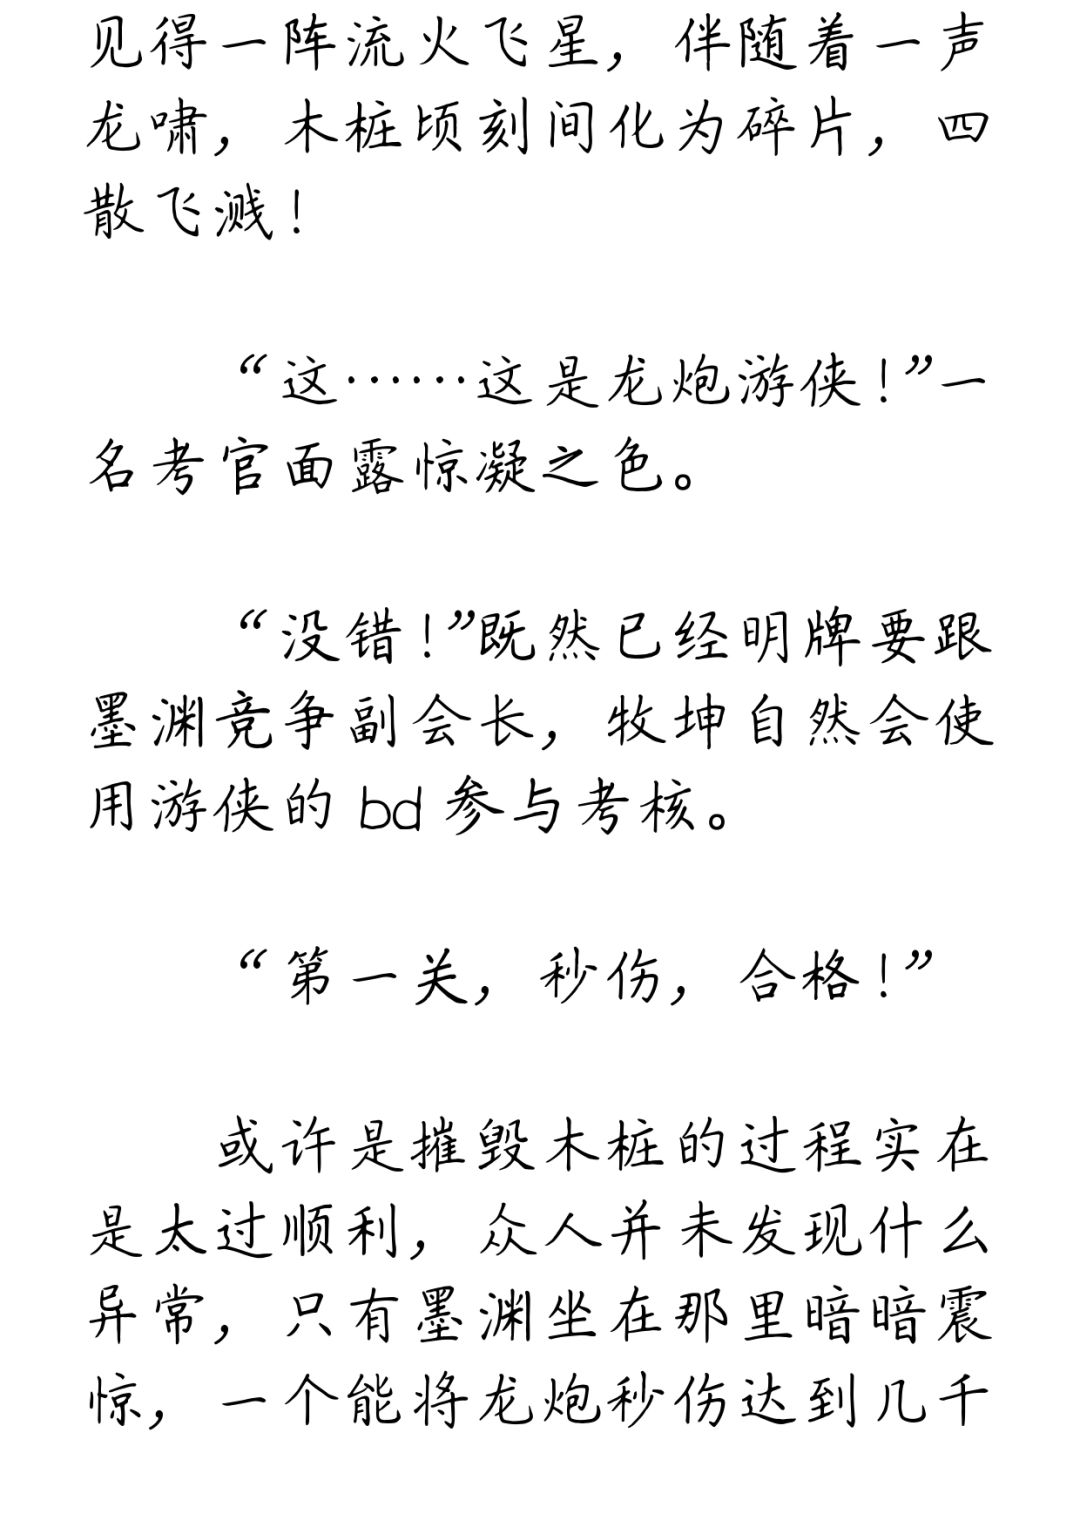 见得一阵流火飞星，伴随着一声
龙啸，木桩顷刻间化为碎片，四
散飞溅！
“这······这是龙炮游侠！”一
名考官面露惊凝之色。
“没错！”既然已经明牌要跟
墨渊竞争副会长，牧坤自然会使
用游侠的 bd 参与考核。
“第一关，秒伤，合格！”
或许是摧毁木桩的过程实在
是太过顺利，众人并未发现什么
异常，只有墨渊坐在那里暗暗震
惊，一个能将龙炮秒伤达到几千